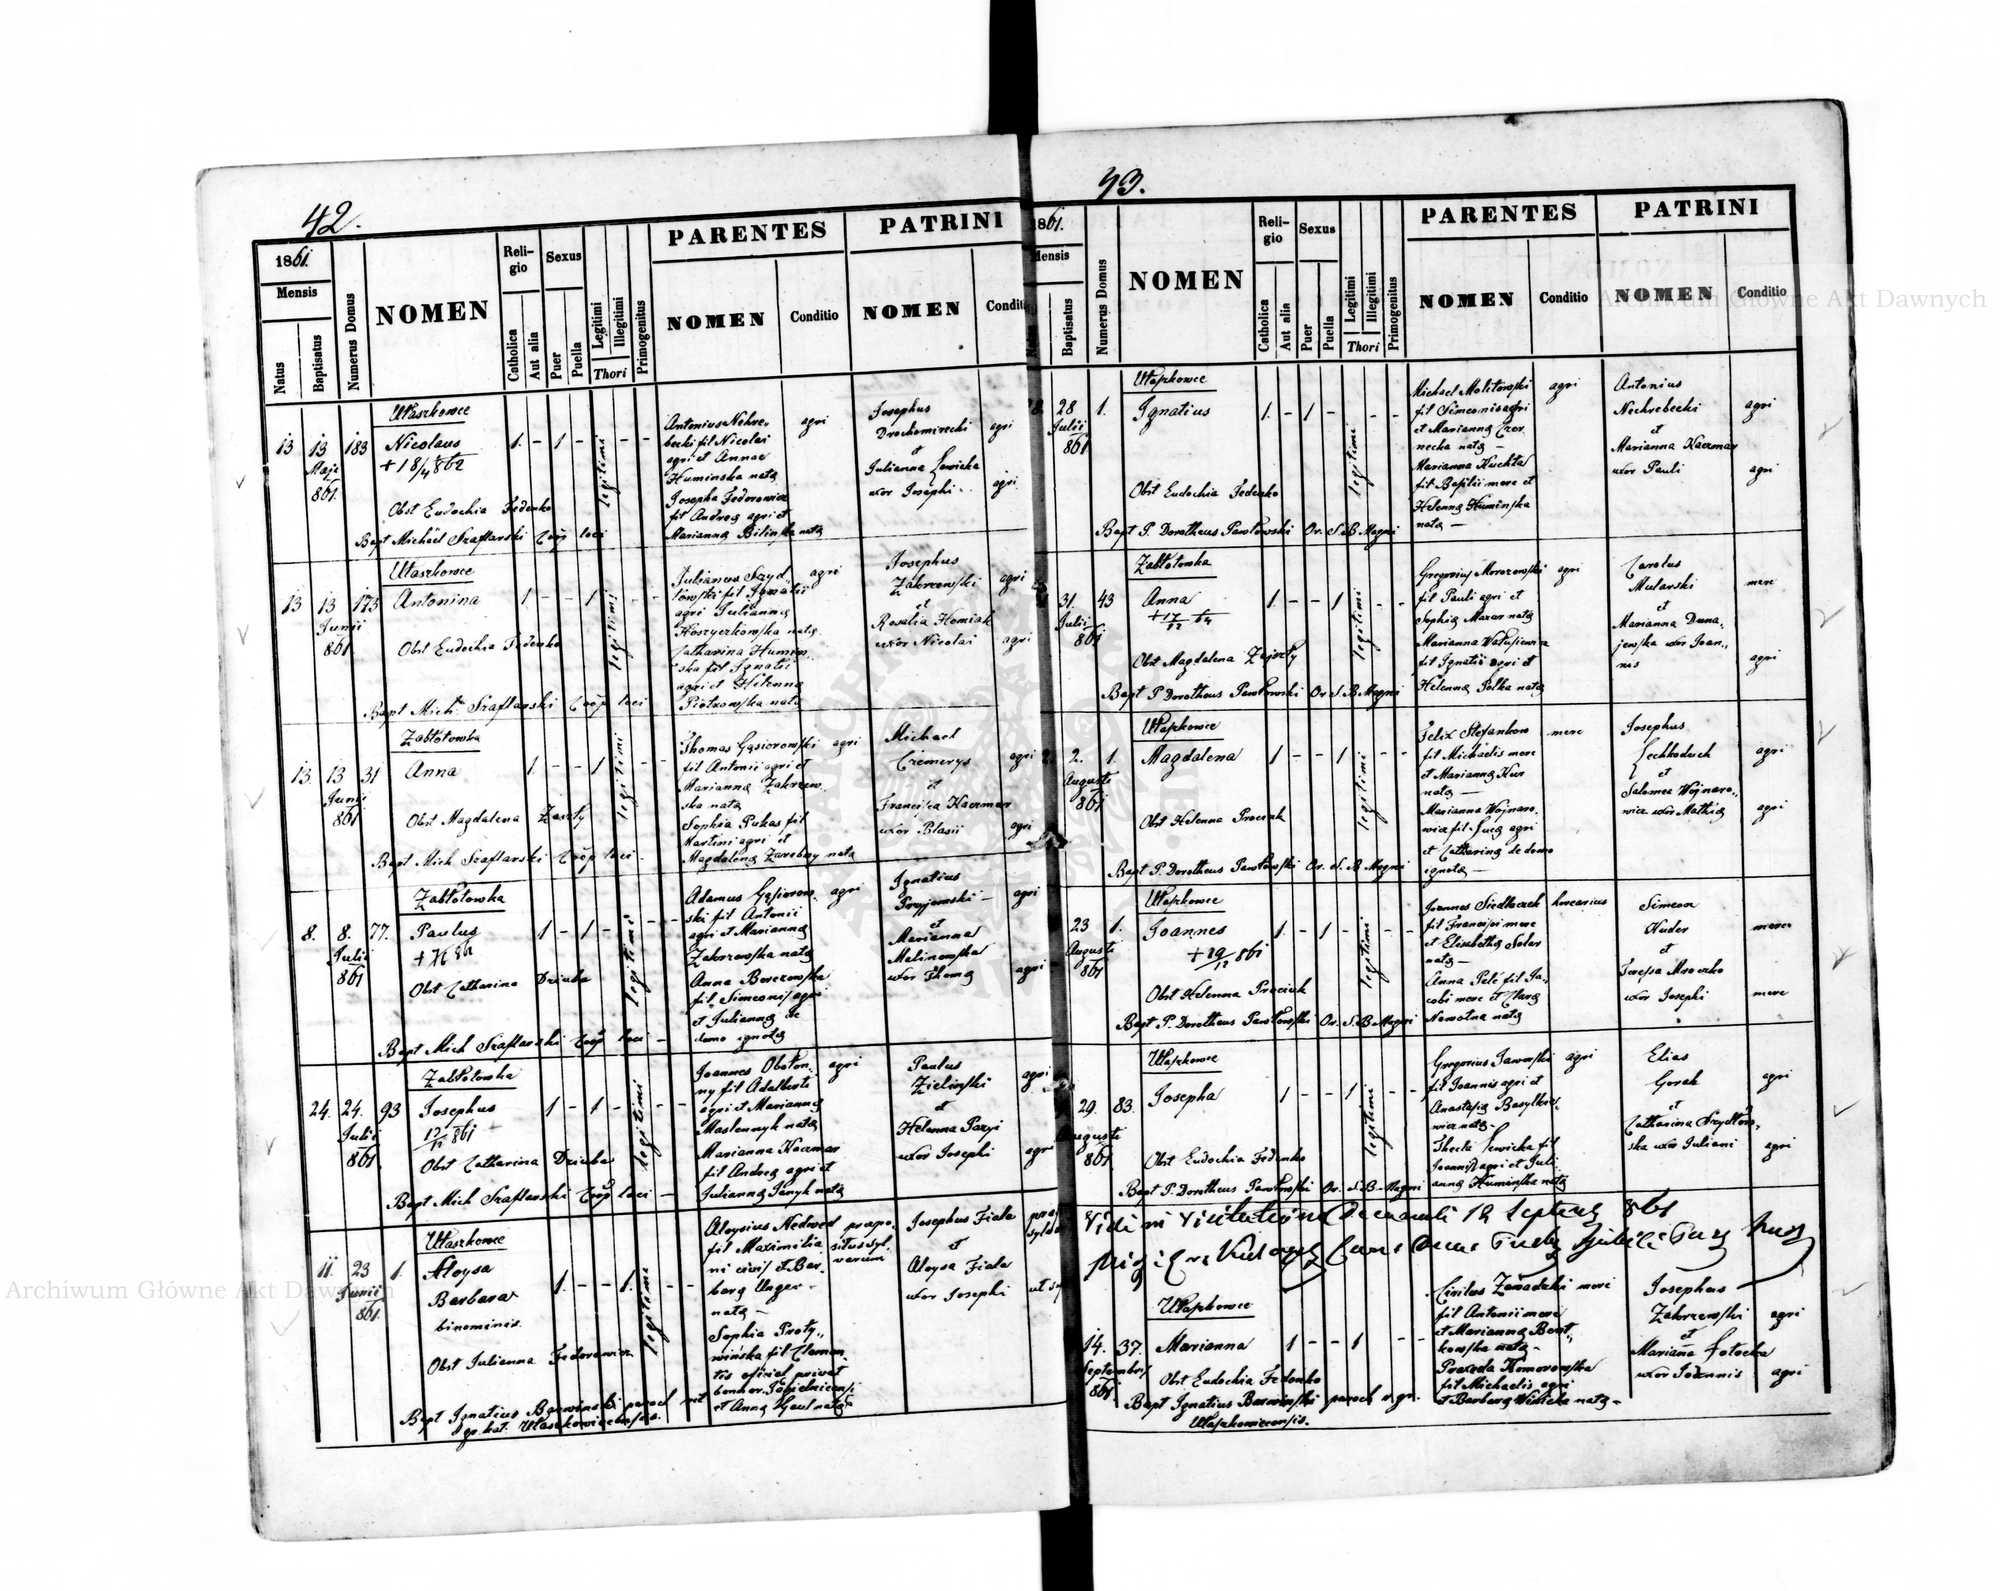 42.
1861.
Mensis
Natus
Baptisatus
Numerus Domus
NOMEN
Reli-
gio
Catholica
Aut alia
Sexus
Puer
Puella
Legitimi
Illegitimi
Thori
Primogenitus
PARENTES
NOMEN
Conditio
PATRINI
NOMEN
Conditio
Ułaszkowce
13 13 183 Nicolaus 1 - 1 - legitimi - -
Maji
861.
+ 18/4 862
Obst Eudochia Fedenko
Bapt Michael Szaflarski Coop loci
Antonius Nehre- agri
becki fil Nicolai
agri et Annae
Huminska nata
Josepha Fedorowicz
fil Andrea agri et
Marianna Bilinska nata
Josephus
Drochomirecki agri
et
Julianna Łowicka
uxor Josephi agri
Ułaszkowce
13 13 173 Antonina 1 - - 1 legitimi - -
Junii
861
Obst Eudochia Fedenko
Bapt Mich. Szaflarski Coop loci
Julianus Szyd- agri
łowski fil Ignatii
agri Julianna
nata
Catharina Humin-
ska fil Ignatii
agri et Helenna
Piotrowska nata
Josephus
Zakrzewski agri
et
Rosalia Homiak
uxor Nicolai agri
Zabłotowka
13 13 31 Anna 1 - - 1 legitimi - -
Junii
861
Obst Magdalena Zaszty
Bapt Mich Szaflarski Coop loci
Thomas Gąsiorowski agri
fil Antonii agri et
Marianna Zakrzew-
ska nata
Sophia Pukas fil
Martini agri et
Magdalena Zarebny nata
Michael
Cremerys agri
et
Francisca Kaczmar
uxor Blasii agri
Zabłotowka
8. 8. 77. Paulus 1 - 1 - legitimi - -
Julii
861
Obst Catharina Dziuba
Bapt Mich Szaflarski Coop loci -
Adamus Gąsiorow- agri
ski fil Antonii
agri et Marianna
Zakrzewska nata
Anna Berezowska
fil. Simeonis agri
et Julianna de
domo ignota
Ignatius
Przyjemski - agri
et
Marianna
Malinowska
uxor Thoma agri
Zabłotowka
24. 24. 93 Josephus 1 - 1 - legitimi - -
Julii
861.
17/12 861
Obst Catharina Dziuba
Bapt Mich Szaflarski Coop loci -
Joannes Oboton- agri
ny fil Adalberti
agri et Marianna
Maslennyk nata
Marianna Kaczmar
fil Andrea agri et
Julianna Janyk nata
Paulus
Zieliński agri
et
Helenna Paryi
uxor Josephi agri
Ułaszkowce
11. 23 1. Aloysa 1. - - 1. legitimi - -
Junii
861.
Barbara
binominis.
Obst Julianna Fedorowicz
Bapt Ignatius Barwinski paroch rit
gr. kat. Ułaszkowicensis.
Aloysius Nedwed praepo-
fil Maximilia- situs syl-
ni civis et Bar- varum
bara Unger
nata -
Sophia Proty-
wińska fil Clemen-
tis oficial privat
et Anna Hjaul nata
Josephus Fiala
et
Aloysa Fiala
uxor Josephi
43.
1861.
Mensis
Natus
Baptisatus
Numerus Domus
NOMEN
Reli-
gio
Catholica
Aut alia
Sexus
Puer
Puella
Legitimi
Illegitimi
Thori
Primogenitus
PARENTES
NOMEN
Conditio
PATRINI
NOMEN
Conditio
Ułaszkowce
28 1. Ignatius 1. - 1 - legitimi - -
Julii
861
Obst Eudochia Fedenko
Bapt P. Dorotheus Pawłowski Or. S. B. Magni
Michael Molitowski agri
fil Simeonis agri
et Marianna Czer-
necka nata -
Marianna Kuchta
fil Basilii merc et
Helenna Huminska
nata -
Antonius
Nechrebecki agri
et
Marianna Kaczmar
uxor Pauli agri
Zabłotowka
31. 43 Anna 1. - - 1 legitimi - -
Julii
861.
+ 17/12 64
Obst Magdalena Zajszty
Bapt P Dorotheus Pawłowski Or. S. B Magni
Gregorius Morozowski agri
fil Pauli agri et
Sophia Mazur nata
Marianna Watasiewicz
fil Ignatii agri et
Helenna Polka nata
Carolus
Mularski merc
et
Marianna Duna-
jewska uxor Joan-
nis agri
Ułaszkowce
2. 1. Magdalena 1 - - 1 legitimi - -
Augusti
861
Obst Helenna Prociuk
Bapt P. Dorotheus Pawłowski Or. S. B Magni
Felix Stefankow merc
fil Michaelis merc
et Marianna Kur
nata -
Marianna Wojnaro-
wicz fil Luca agri
et Catharina de domo
ignota -
Josephus
Lechkoduch agri
et
Salomea Wojnaro-
wicz uxor Mathia agri
Ułaszkowce
23 1. Joannes 1. - 1 - legitimi - -
Augusti
861
+ 29/12 861
Obst Helenna Prociuk
Bapt P. Dorotheus Pawłowski Or. S. B Magni
Joannes Siedlaczek
fil Francisci merc
et Elisabetha Solar
nata -
Anna Pele fil Ja-
cobi merc et Clara
Nowotna nata
Simeon
Huder merc
et
Teressa Mroczko
uxor Josephi merc
Ułaszkowce
29. 83. Josepha 1 - - 1 legitimi - -
Augusti
861
Obst Eudochia Fedenko
Bapt P. Dorotheus Pawłowski Or. S. B. Magni
Gregorius Jaworski agri
fil Joannis agri et
Anastasia Basylkie-
wicz nata -
Thecla Lewicka fil
Joannis agri et Juli-
anna Huminska nata
Elias
Gorak agri
et
Catharina Szydłow-
ska uxor Juliani agri
Vidi in Visitatione Decanali 12 Septembr 861
Ułaszkowce
14. 37. Marianna 1 - - 1 - -
Septembris
861
Obst Eudochia Fedenko
Bapt Ignatius Barwinski paroch r. gr.
Ułaszkowicensis.
Cirilus Zawadzki merc
fil Antonii merc
et Marianna Bent-
kowska nata -
Praxeda Komorowska
fil Michaelis agri
et Barbara Winicka nata -
Josephus
Zakrzewski agri
et
Marianna Potocka
uxor Joannis agri
Archiwum Główne Akt Dawnych
Archiwum Główne Akt Dawnych